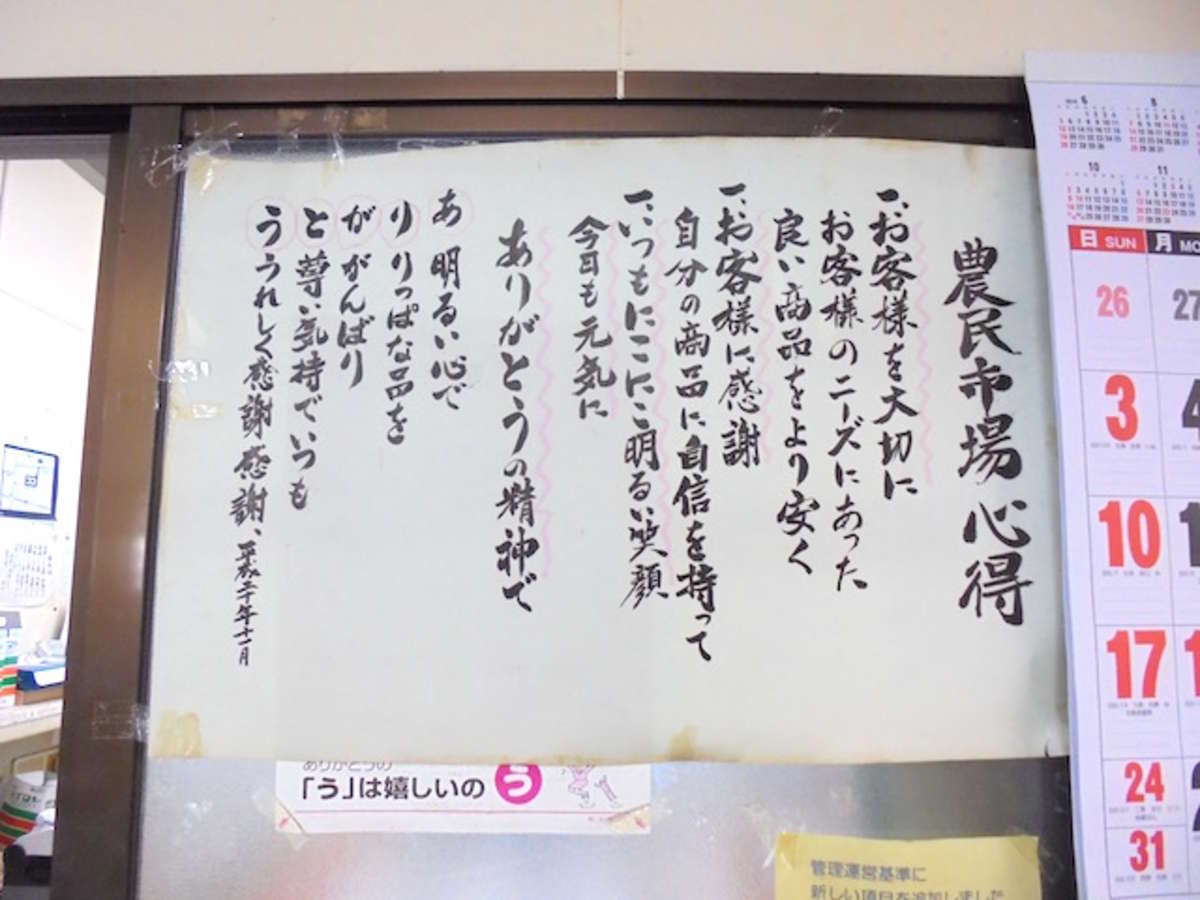 農民市場心得
一、お客様を大切に
お客様のニーズにあった
良い商品をより安く
一、お客様に感謝
自分の商品に自信を持って
一、いつもにこにこ明るい笑顔
今日も元気に
ありがとうの精神で
あ 明るい心で
り りっぱな品を
が がんばり
と 尊い気持でいつも
う うれしく感謝感謝、
平成二十年十一月
ありがとうの
「う」は嬉しいの う
管理運営基準に
新しい項目を追加しました
6
8
10
11
日 SUN
月 MO
26
27
3
4
10
17
24
31